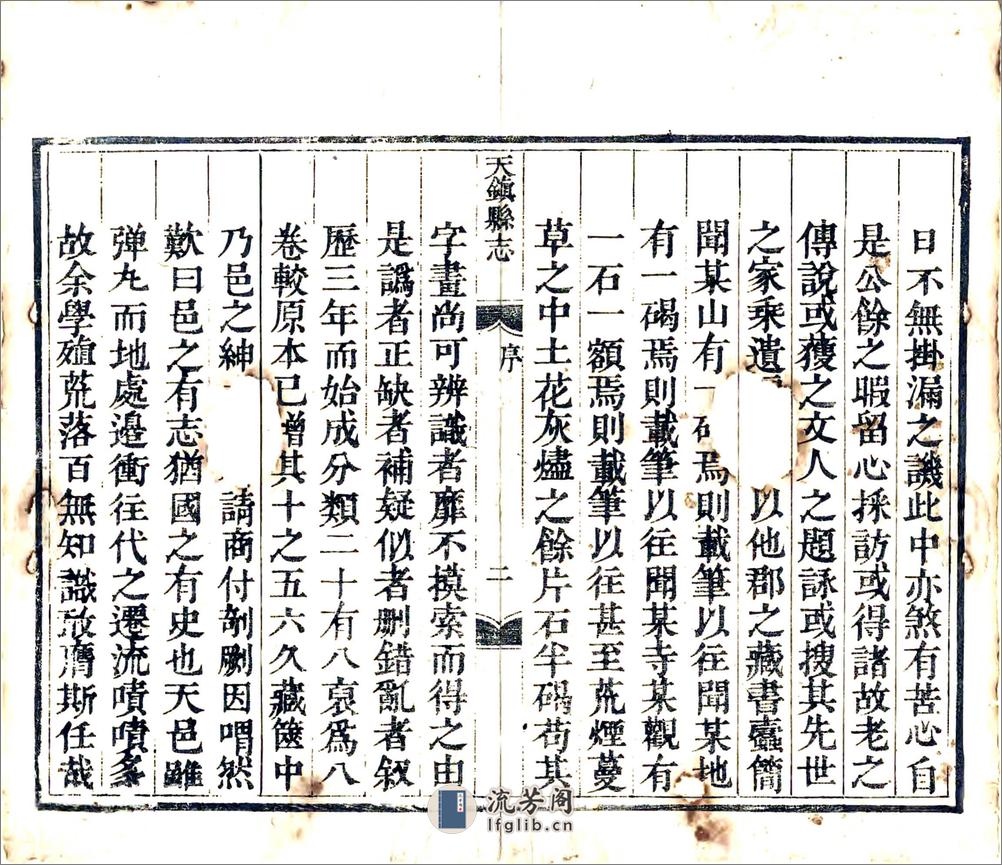 日不無掛漏之譏此中亦煞有苦心自
是公餘之暇留心採訪或得諸故老之
傳說或獲之文人之題詠或搜其先世
之家乘遺以他郡之藏書蠹簡
聞某山有一焉則載筆以往聞某地
有一碣焉則載筆以往聞某寺某觀有
一石一額焉則載筆以往甚至荒煙蔓
草之中土花灰燼之餘片石半碣苟其
天鎮縣志
序
二
字畫尚可辨識者靡不摸索而得之由
是譌者正缺者補疑似者刪錯亂者叙
歷三年而始成分類二十有八裒為八
卷較原本已增其十之五六久藏篋中
乃邑之紳請商付剞劂因喟然
歎曰邑之有志猶國之有史也天邑雖
彈丸而地處邊衝往代之遷流嘖嘖多
故余學殖荒落百無知識敢膺斯任哉
流芳阁
lfglib.cn